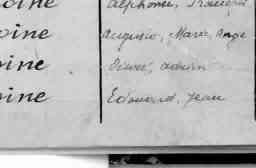 oine Alphonse, François
oine Augusto, Marie, Ange
oine
oine Edouard, Jean